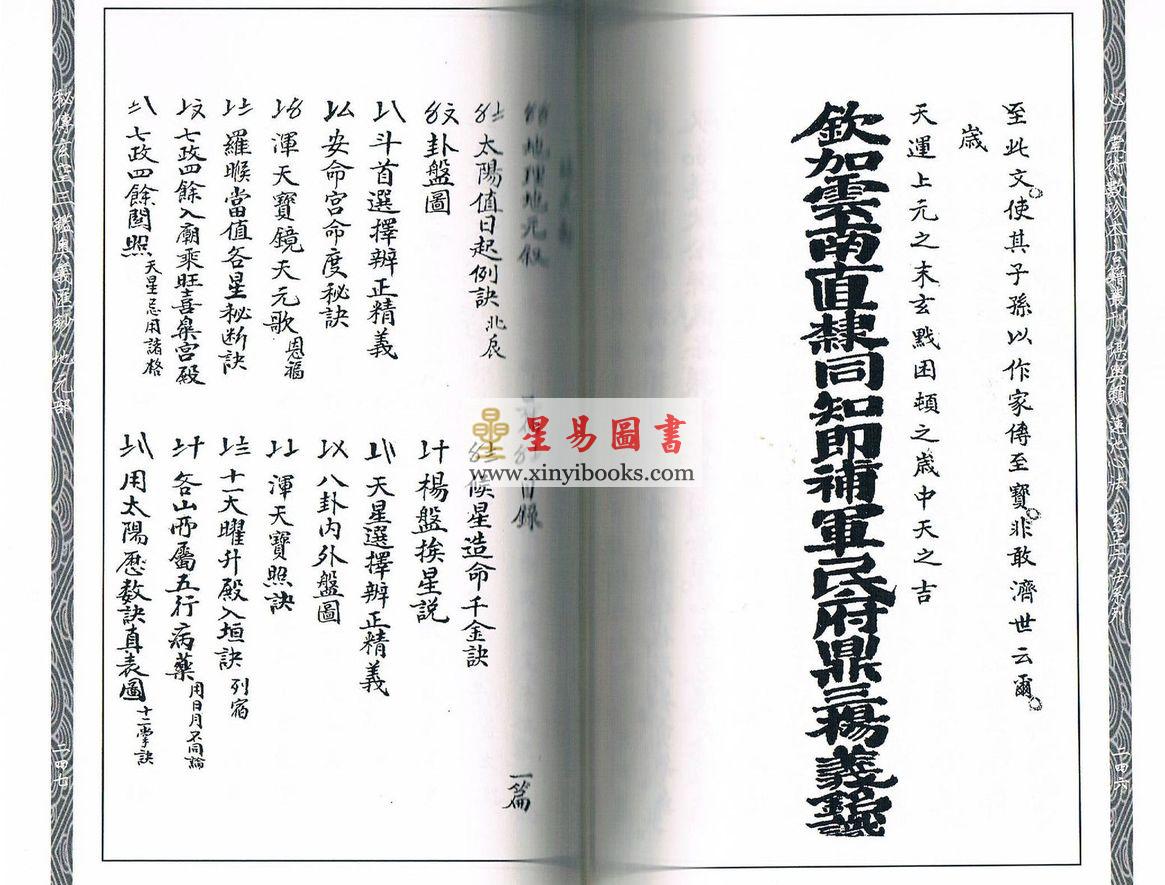 至此文使其子孫以作家傳至寶非敢濟世云爾
歲
天運上元之末玄戰困頓之歲中天之吉
欽加雲南直隸同知即補軍民府鼎三楊義
二四六
星易圖書
www.xinyibooks.com
地理地元
目錄
一篇
太陽值日起例訣 北辰
候星造命千金訣
卦盤圖
楊盤挨星説
斗首選擇辨正精義
天星選擇辨正精義
安命宮命度秘訣
八卦內外盤圖
渾天寶鏡天元歌 恩福
渾天寶照訣
羅睺當值各星秘断訣
十一大曜升殿入垣訣 列宿
七政四餘入廟乘旺喜樂宮殿
各山所屬五行病藥 用日月不同論
七政四餘関照 天星忌用諸格
用太陽歷数訣真表圖 十二掌訣
秘傳玄空三鑑奧義匯鈔 地元部
二四七